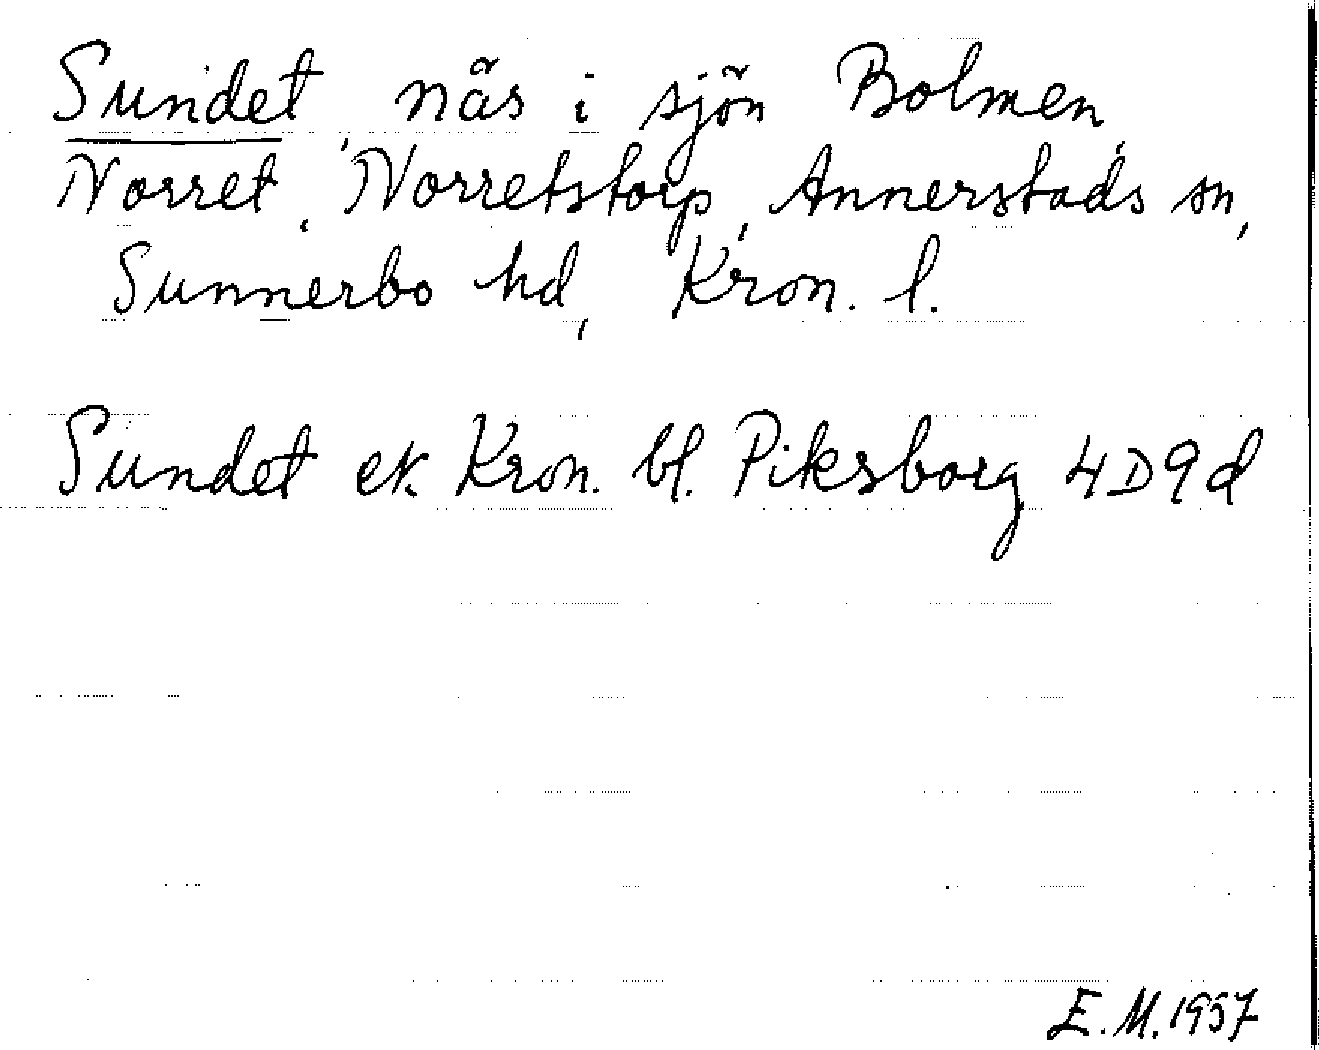 Sundet, näs i sjön Bolmen,
Norret, Norretstorp, Annerstads sn,
Sunnerbo hd, Kron. l.
Sundet ek Kron. bl. Piksborg 4D9d
E.M. 1957